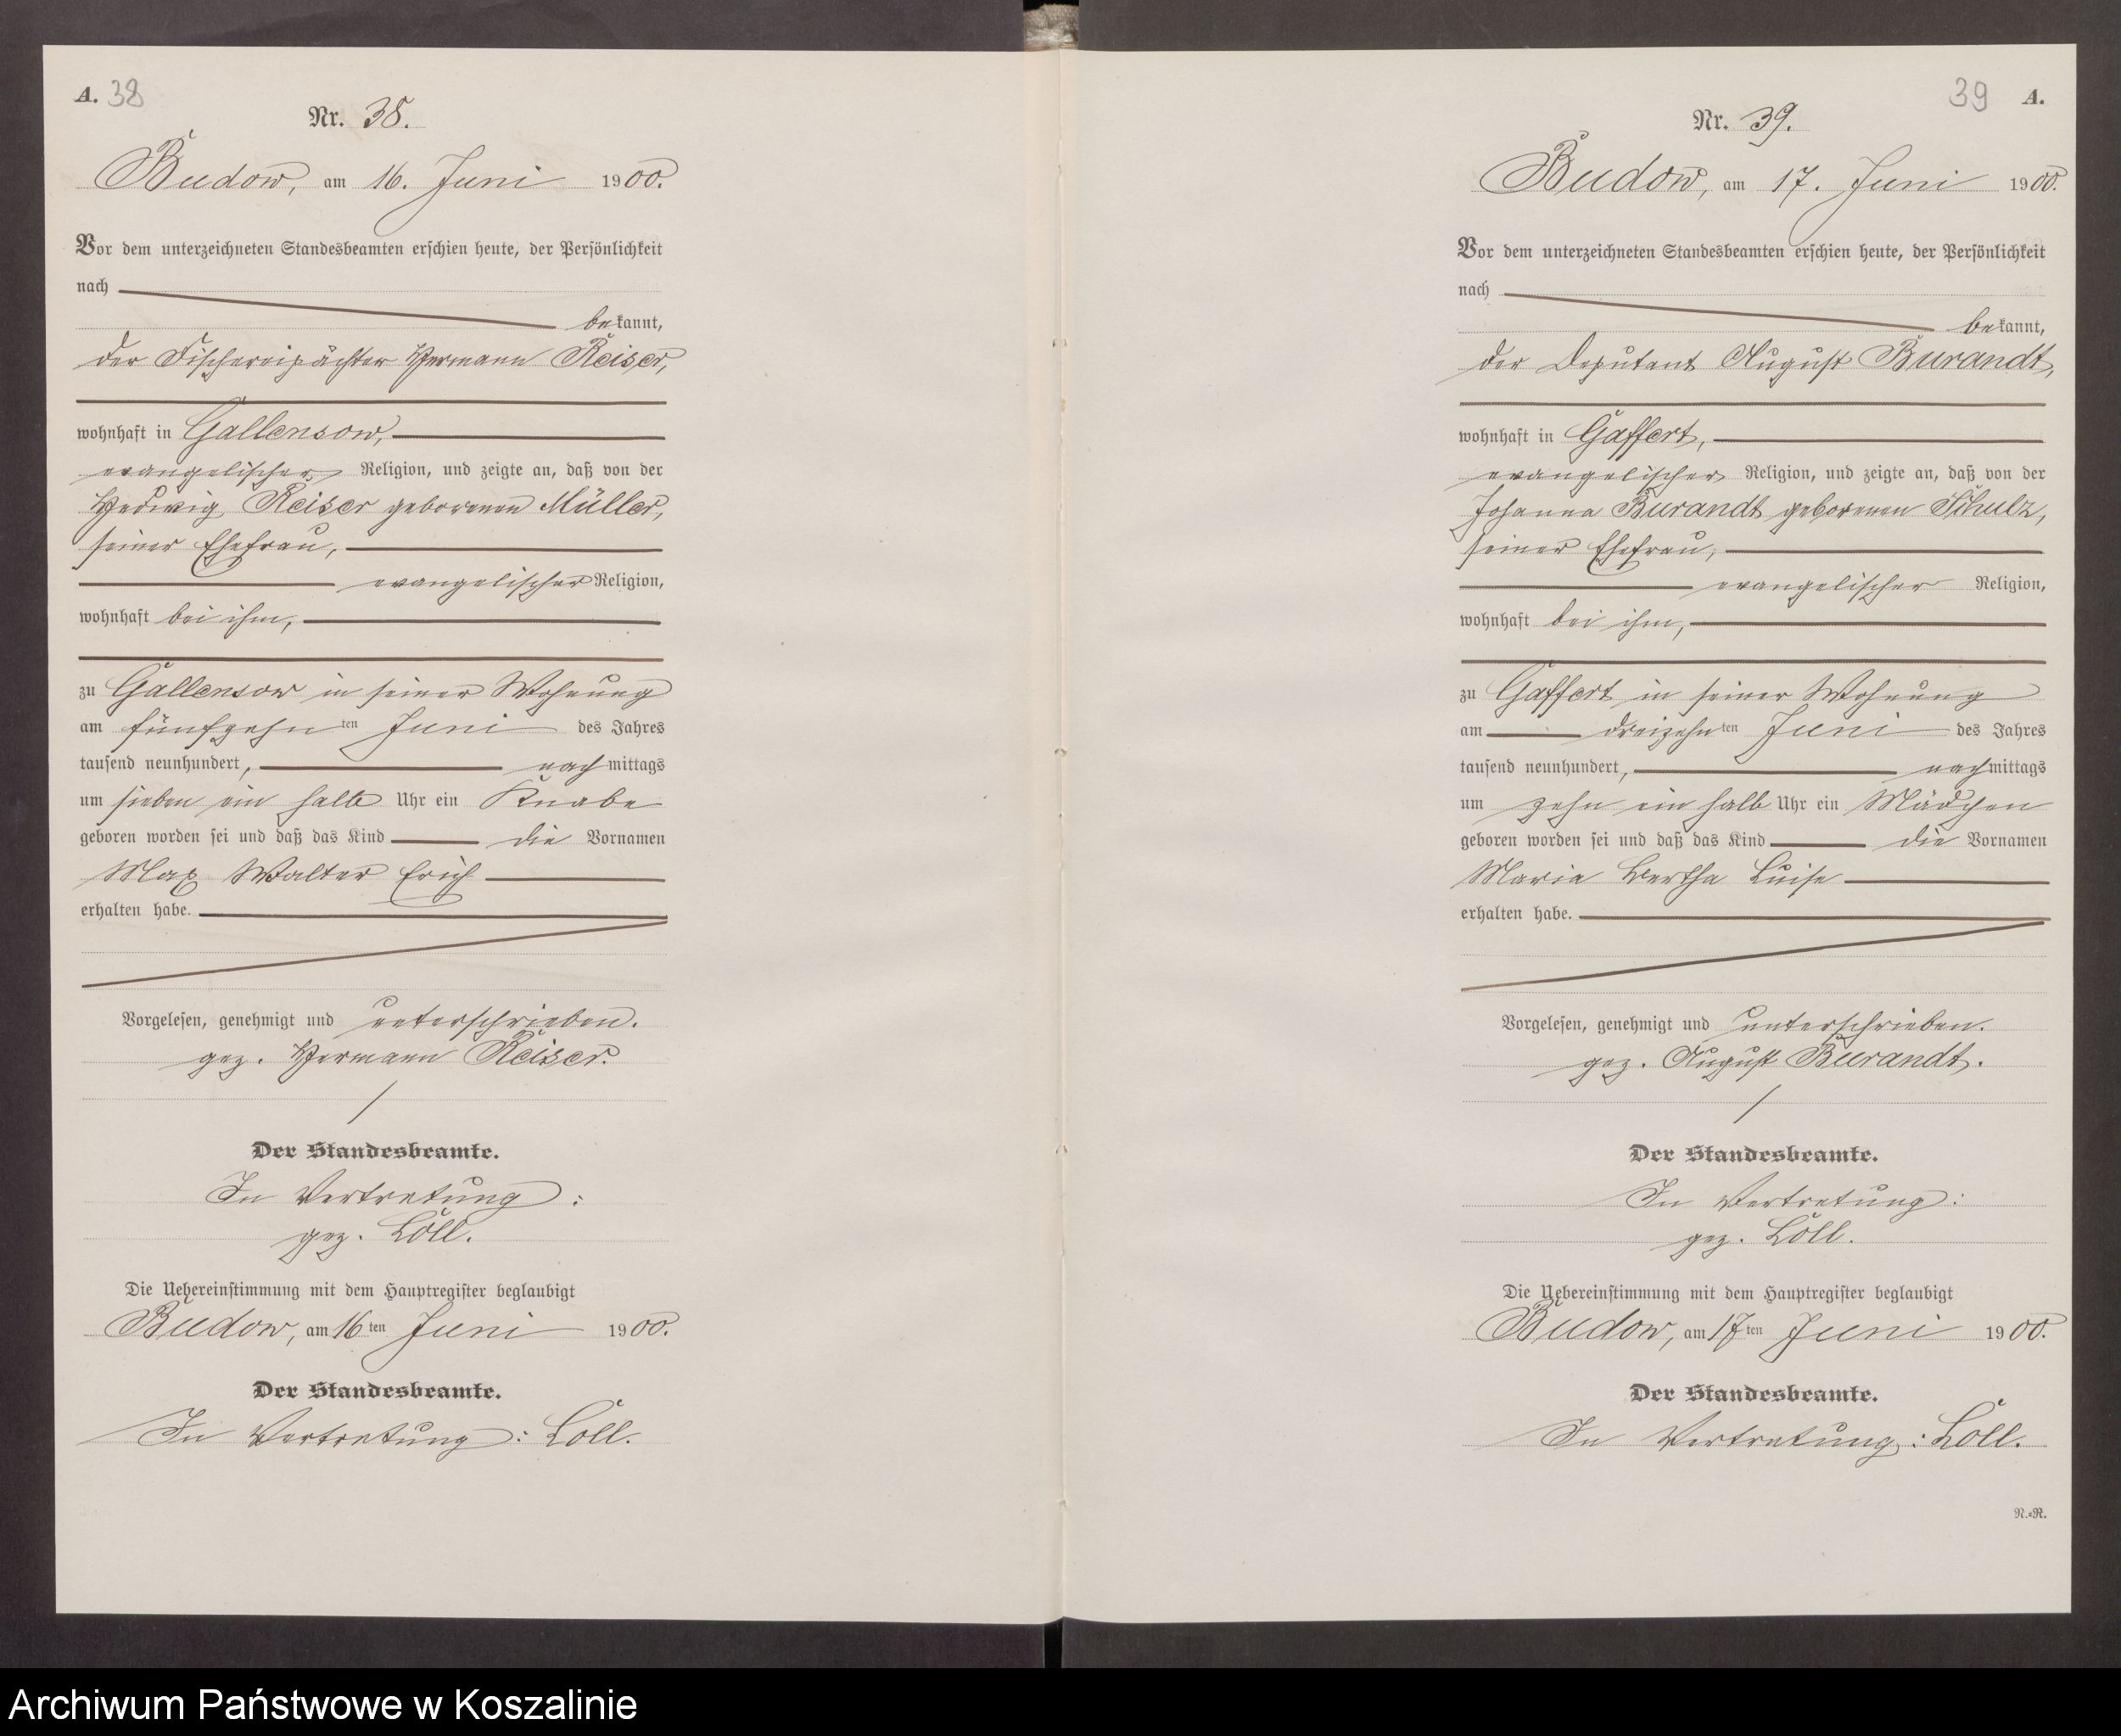 A. 38
Nr. 38.
Budow, am 16. Juni 1900.
Vor dem unterzeichneten Standesbeamten erschien heute, der Persönlichkeit
nach
bekannt,
der Fischereipächter Hermann Reiser,
wohnhaft in Gallensow,
evangelischer Religion, und zeigte an, daß von der
Hedwig Reiser geborenen Müller,
seiner Ehefrau,
evangelischer Religion,
wohnhaft bei ihm,
zu Gallensow in seiner Wohnung
am fünfzehnten Juni des Jahres
tausend neunhundert, nachmittags
um sieben ein halb Uhr ein Knabe
geboren worden sei und daß das Kind die Vornamen
Max Walter Erich
erhalten habe.
Vorgelesen, genehmigt und unterschrieben.
gez. Hermann Reiser.
Der Standesbeamte.
In Vertretung:
gez. Löll.
Die Uebereinstimmung mit dem Hauptregister beglaubigt
Budow, am 16ten Juni 1900.
Der Standesbeamte.
In Vertretung: Löll.
39 A.
Nr. 39.
Budow, am 17. Juni 1900.
Vor dem unterzeichneten Standesbeamten erschien heute, der Persönlichkeit
nach
bekannt,
der Deputant August Burandt,
wohnhaft in Gaffert,
evangelischer Religion, und zeigte an, daß von der
Johanna Burandt geborenen Schulz,
seiner Ehefrau,
evangelischer Religion,
wohnhaft bei ihm,
zu Gaffert in seiner Wohnung
am dreizehnten Juni des Jahres
tausend neunhundert, nachmittags
um zehn ein halb Uhr ein Mädchen
geboren worden sei und daß das Kind die Vornamen
Maria Bertha Luise
erhalten habe.
Vorgelesen, genehmigt und unterschrieben.
gez. August Burandt.
Der Standesbeamte.
In Vertretung:
gez. Löll.
Die Uebereinstimmung mit dem Hauptregister beglaubigt
Budow, am 17ten Juni 1900.
Der Standesbeamte.
In Vertretung: Löll.
N.=R.
Archiwum Państwowe w Koszalinie